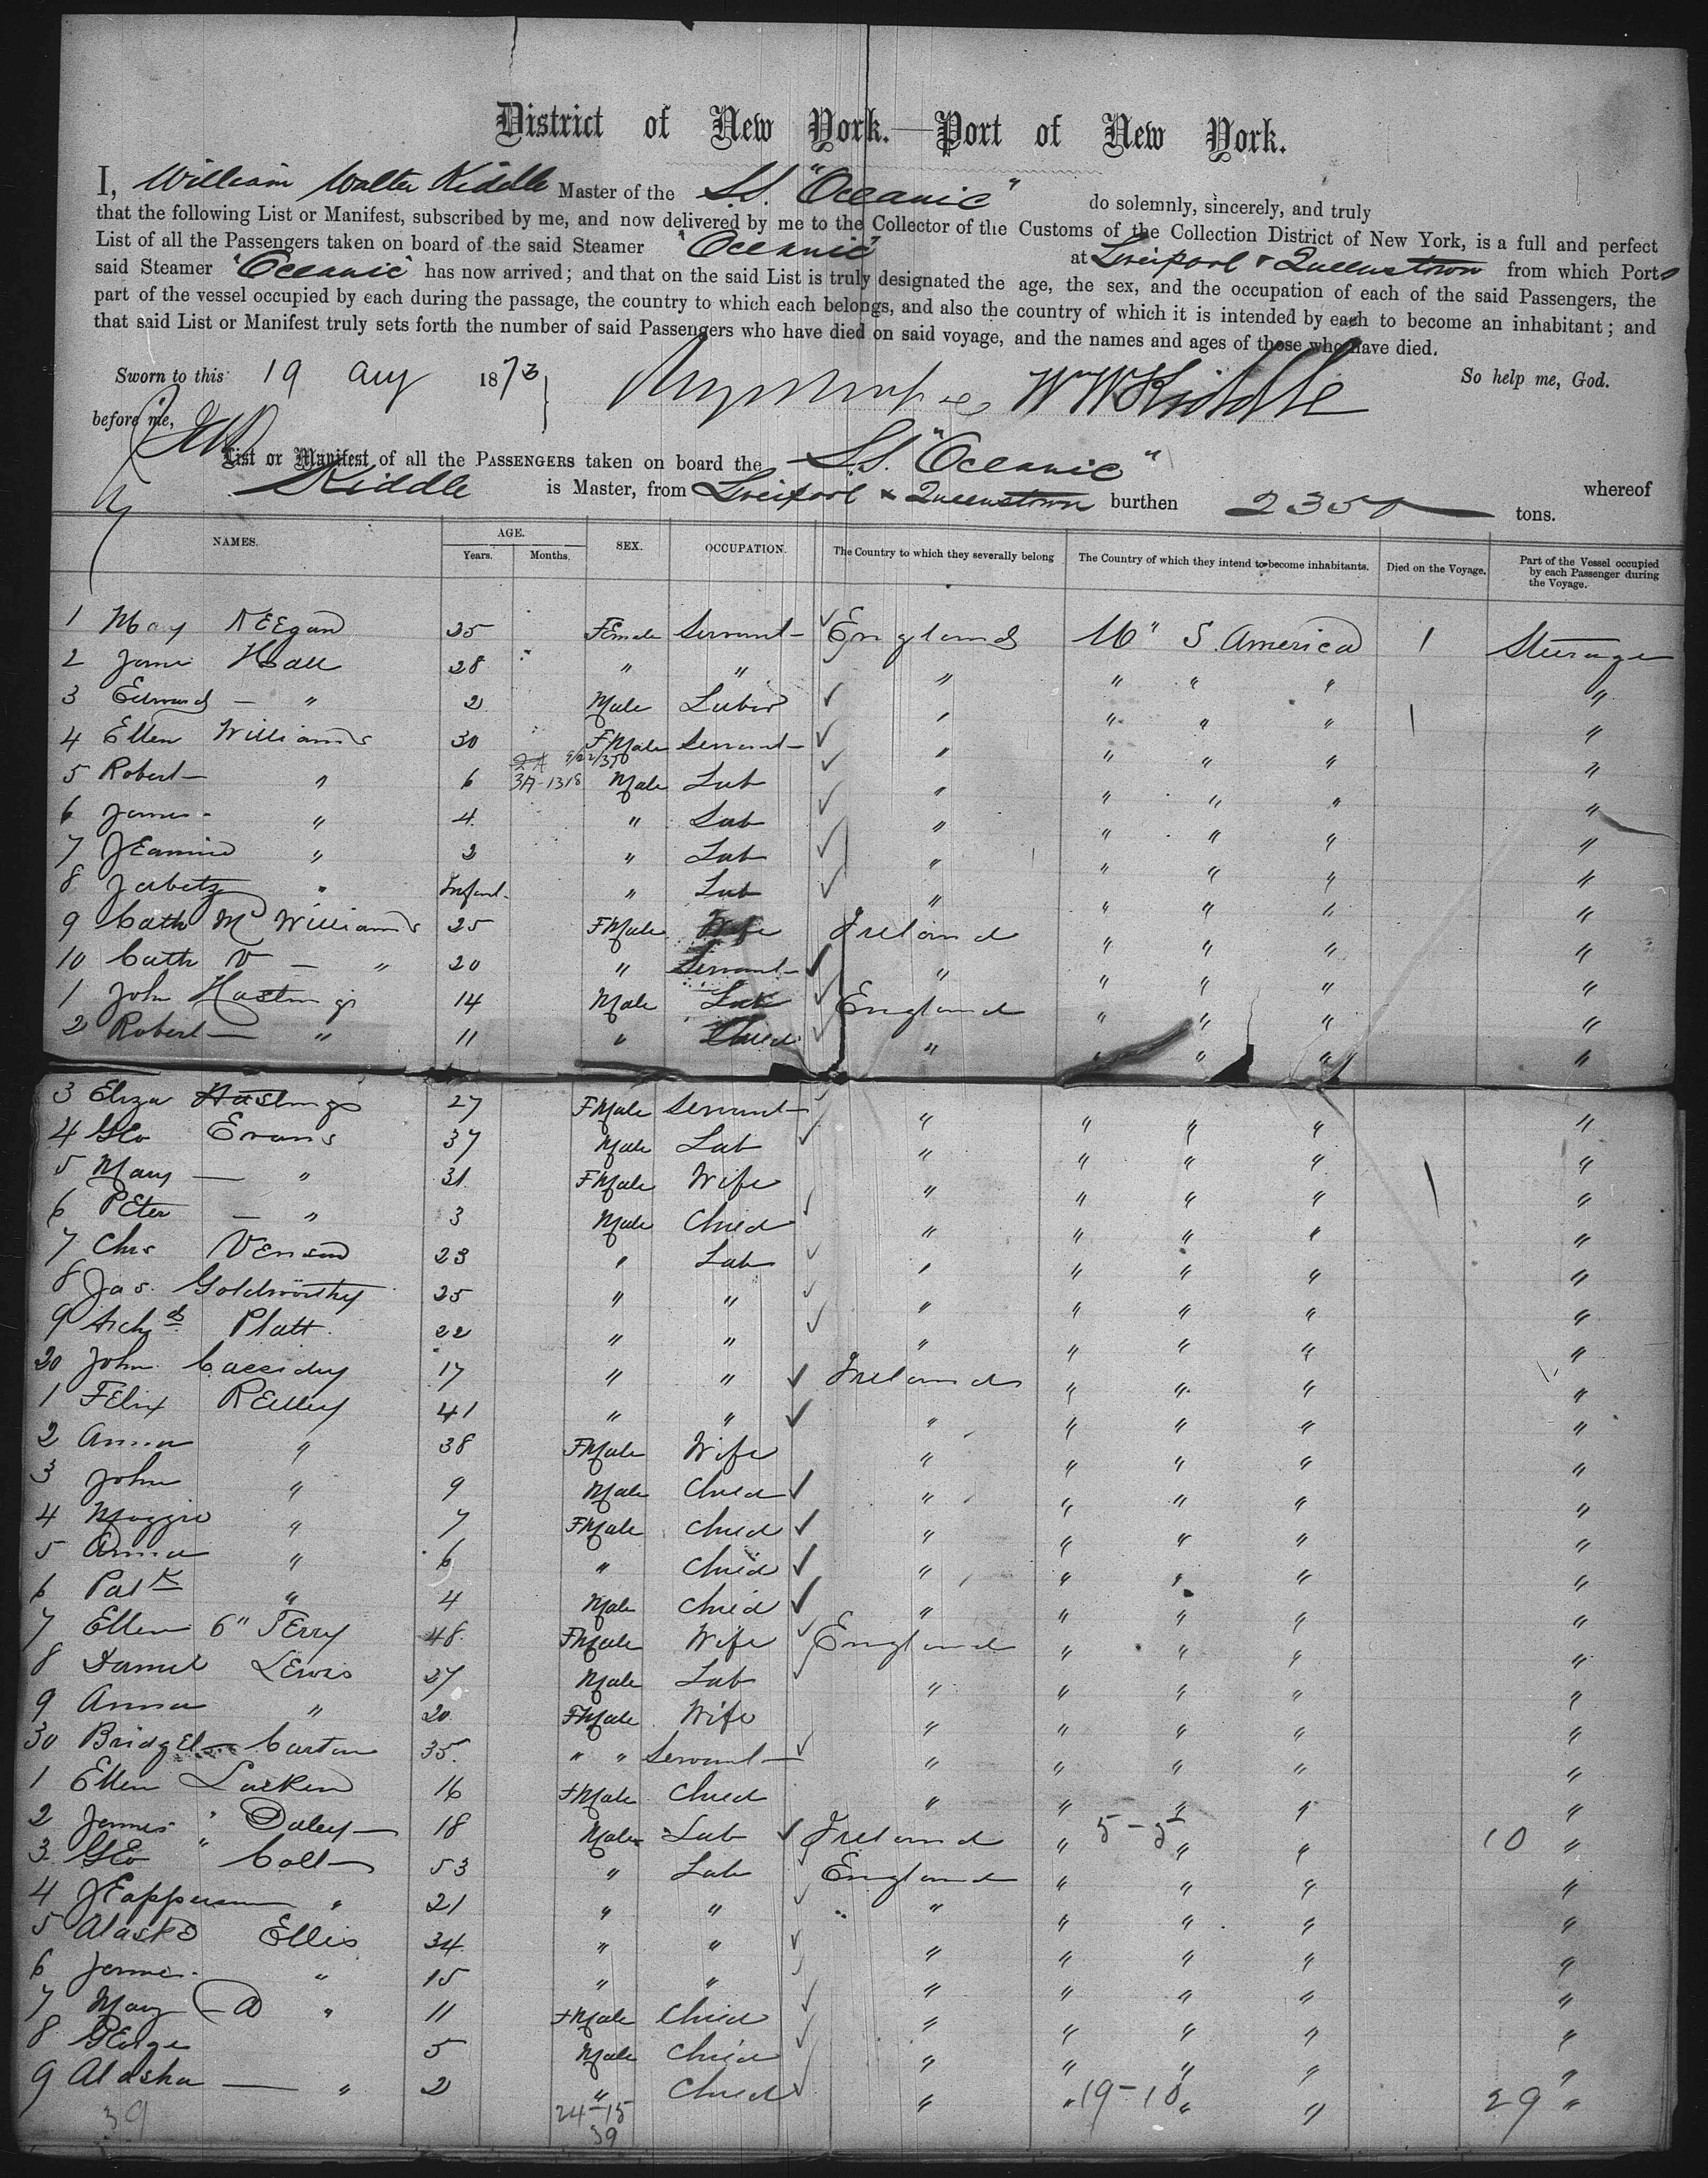 District of New York.—Port of New York.
I, William Walter Kiddle Master of the S.S. "Oceanic" do solemnly, sincerely, and truly
that the following List or Manifest, subscribed by me, and now delivered by me to the Collector of the Customs of the Collection District of New York, is a full and perfect
List of all the Passengers taken on board of the said Steamer "Oceanic" at Liverpool & Queenstown from which Port
said Steamer "Oceanic" has now arrived; and that on the said List is truly designated the age, the sex, and the occupation of each of the said Passengers, the
part of the vessel occupied by each during the passage, the country to which each belongs, and also the country of which it is intended by each to become an inhabitant; and
that said List or Manifest truly sets forth the number of said Passengers who have died on said voyage, and the names and ages of those who have died.
Sworn to this 19 Aug 1873 W W Kiddle So help me, God.
before me,
List or Manifest of all the PASSENGERS taken on board the S.S. "Oceanic" whereof
Kiddle is Master, from Liverpool & Queenstown burthen 2350 tons.
NAMES. AGE. Years. Months. SEX. OCCUPATION. The Country to which they severally belong The Country of which they intend to become inhabitants. Died on the Voyage. Part of the Vessel occupied by each Passenger during the Voyage.
1 Mary Keegan 35 Female Servant England U" S. America 1 Steerage
2 Jane Hall 28 " " " " " " "
3 Edward — " 2 Male Labor " " " " 1 "
4 Ellen Williams 30 FMale Servant " " " " "
5 Robert — " 6 3A-1318 Male Lab " " " " "
6 James " 4 " Lab " " " " "
7 Jeannie " 2 " Lab " " " " "
8 Jabetz " Infant " Lab " " " " "
9 Cath McWilliams 25 FMale Wife Ireland " " " "
10 Cath — " 20 " Servant " " " " "
1 John Hastings 14 Male Lab England " " " "
2 Robert — " 11 " Child " " " " "
3 Eliza Hastings 27 FMale Servant " " " " "
4 Geo Evans 37 Male Lab " " " " "
5 Mary — " 31 FMale Wife " " " " 1 "
6 Peter — " 3 Male Child " " " " "
7 Chrs 23 " Lab " " " " "
8 Jas. Goldworthy 25 " " " " " " "
9 Archd Platt 22 " " " " " " "
20 John Cassidy 17 " " Ireland " " " "
1 Felix Reilley 41 " " " " " " "
2 Anna " 38 FMale Wife " " " " "
3 John " 9 Male Child " " " " "
4 Maggie " 7 FMale Child " " " " "
5 Anna " 6 " Child " " " " "
6 Patk " 4 Male Child " " " " "
7 Ellen Terry 48 FMale Wife England " " " "
8 Daniel Lewis 27 Male Lab " " " " "
9 Anna " 20 FMale Wife " " " " "
30 Bridget Carton 35 " " Servant " " " " "
1 Ellen Larken 16 FMale Child " " " " "
2 James Daley 18 Male Lab Ireland " 5-5 " " 10 "
3 Geo 53 " Lab England " " " "
4 " 21 " " " " " " "
5 Ellis 34 " " " " " " "
6 James " 15 " " " " " " "
7 Mary A " 11 FMale Child " " " " "
8 George 5 Male Child " " " " "
9 Alasha — " 2 " Child " " 19-10 " " 29 "
39 24-15
39